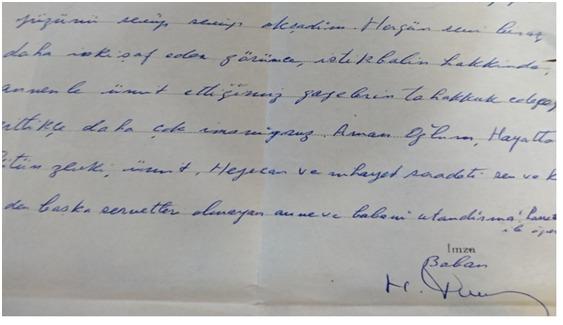 yüzünü sevip sevip okşadım. Hergün seni biraz
daha inkişaf eden görünce, istikbalin hakkında,
annenle ümit ettiğimiz gayelerin tahakkuk edeceğ
gittikçe daha çok inanıyoruz. Aman Oğlum, Hayatta
bütün zevki, ümit, Heyecan ve nihayet saadeti sen ve k
den başka servetler olmayan anne ve babanı utandırma!
ile öper
İmza
Baban
H.